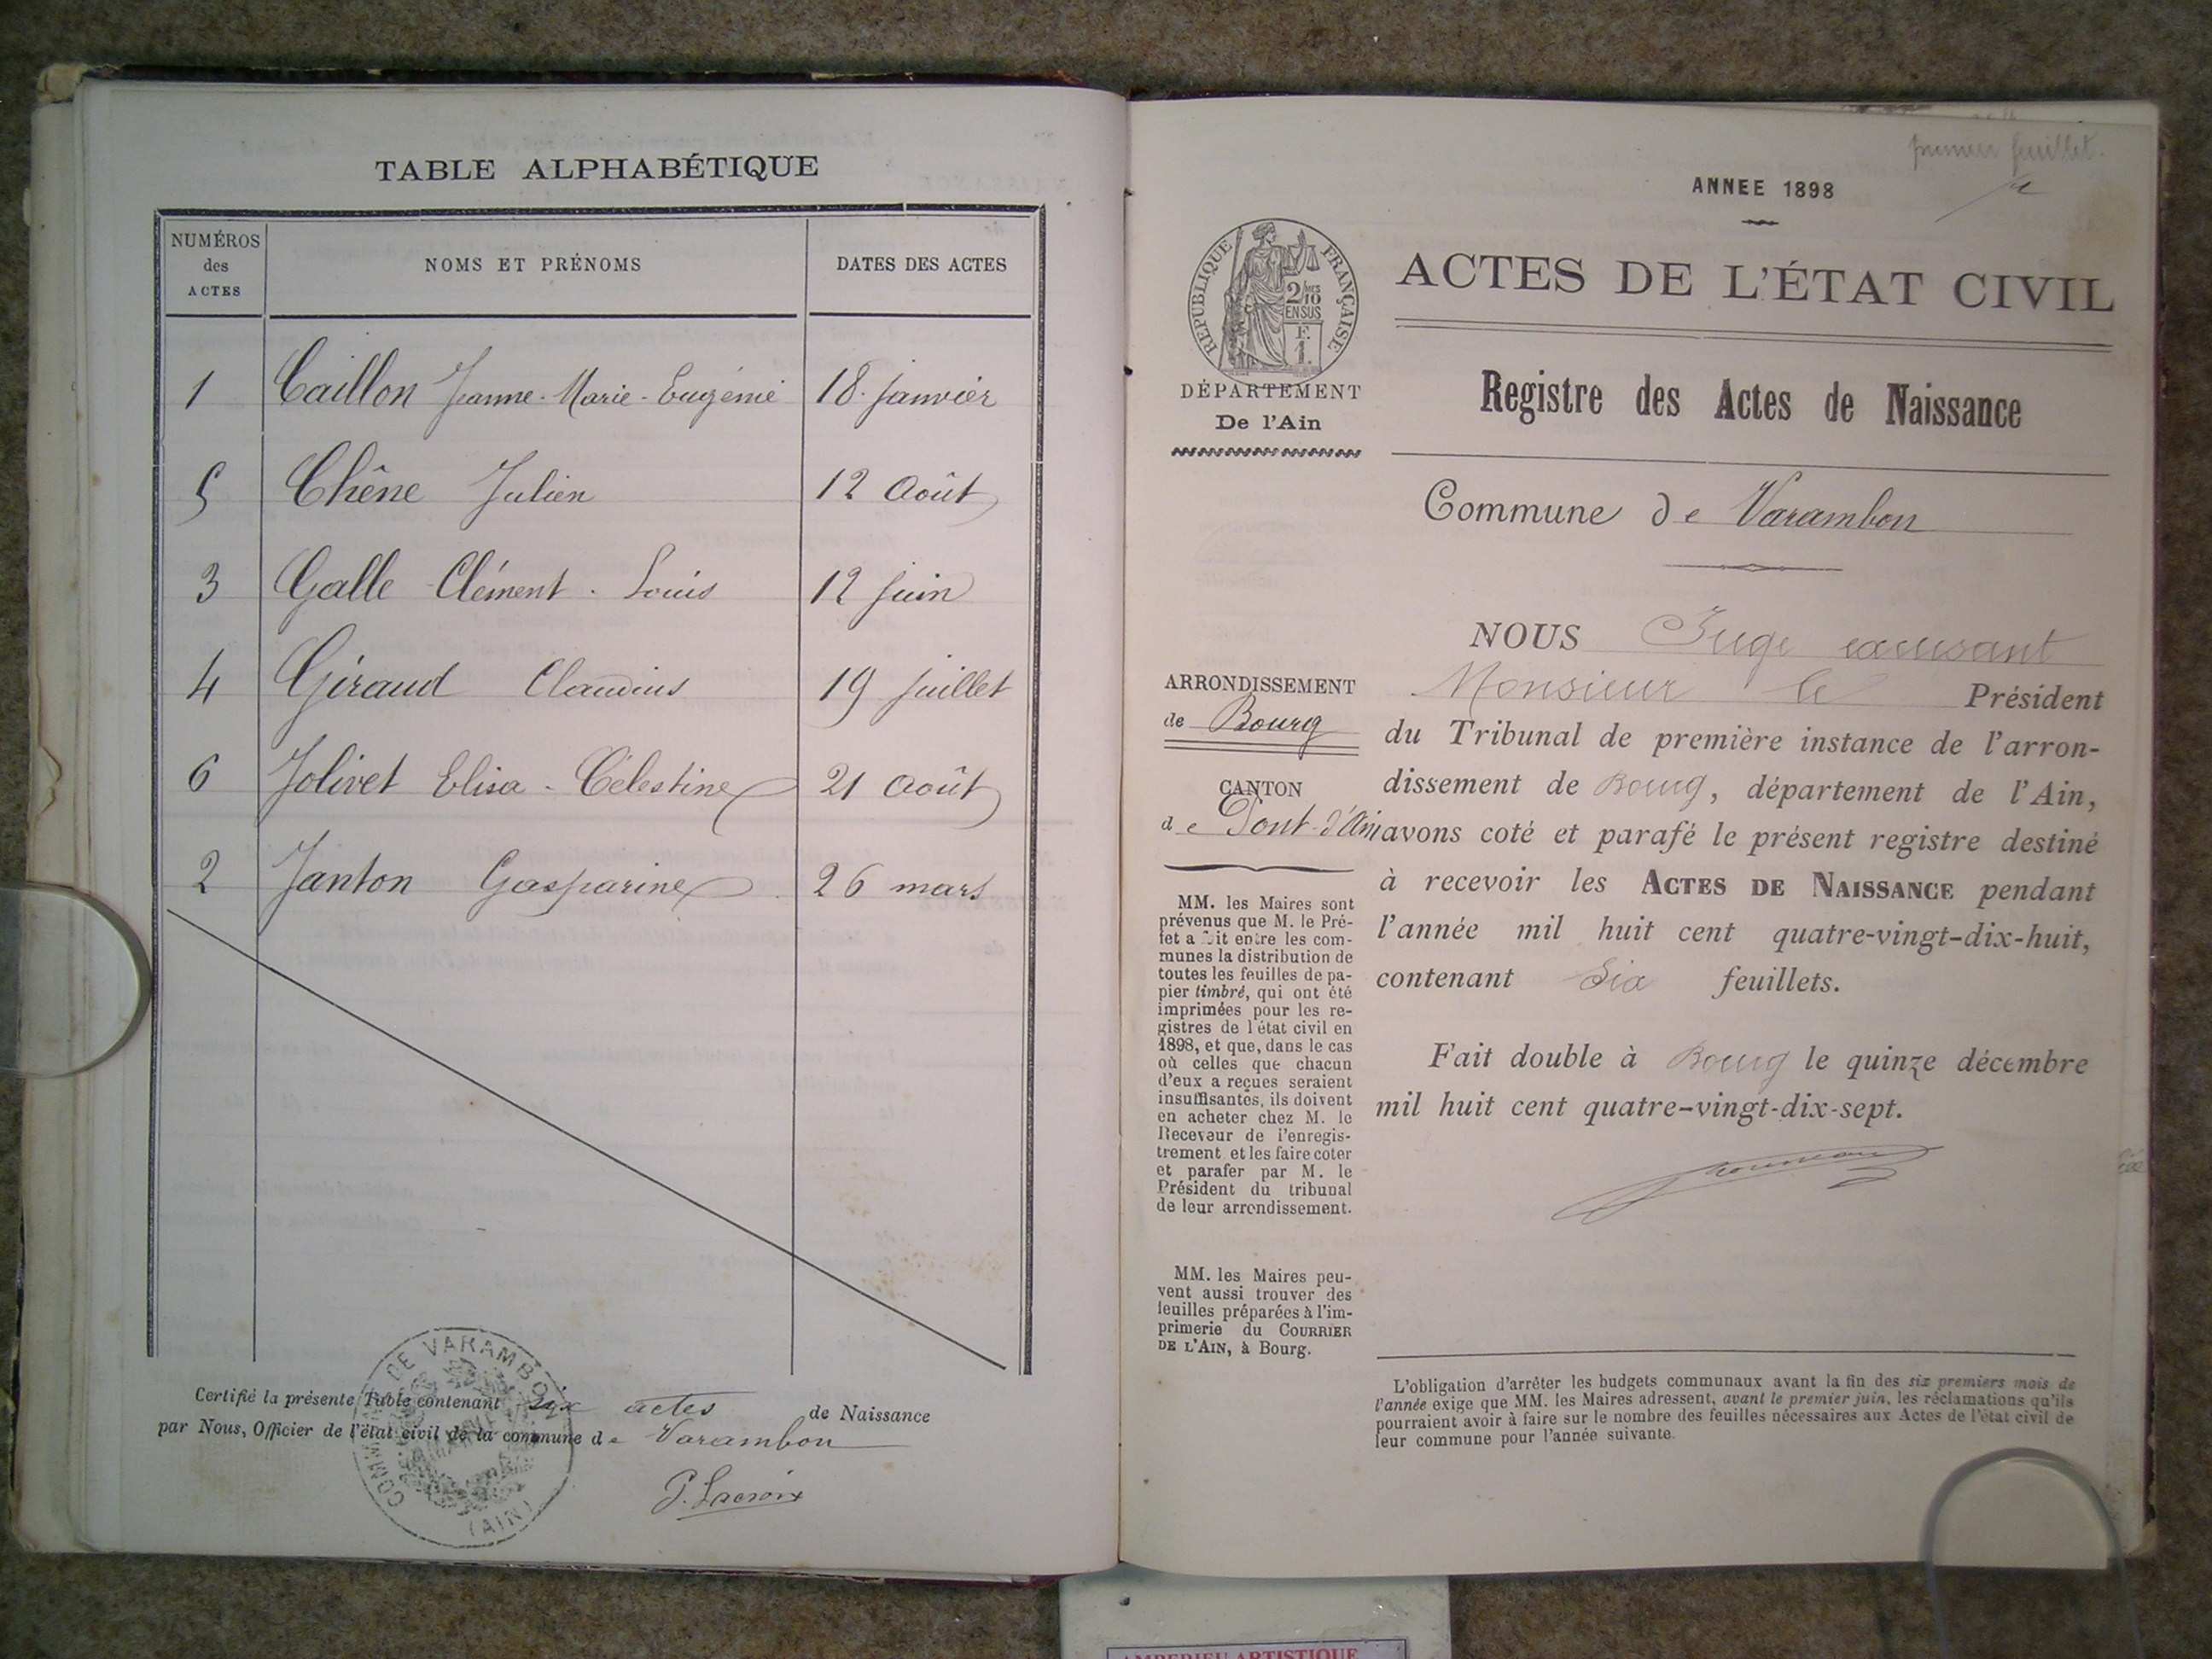 TABLE ALPHABÉTIQUE
NUMÉROS des ACTES
NOMS ET PRÉNOMS
DATES DES ACTES
1 Caillon Jeanne-Marie-Eugénie 18 janvier
5 Chêne Julien 12 Août
3 Galle Clément-Louis 12 juin
4 Giraud Claudius 19 juillet
6 Jolivet Elisa-Célestine 21 Août
2 Janton Gasparine 26 mars
Certifié la présente Table contenant six actes de Naissance
par Nous, Officier de l'état civil de la commune de Varambon
P. Lacroix
COMMUNE DE VARAMBON
(AIN)
premier feuillet.
ANNEE 1898
REPUBLIQUE FRANÇAISE
2/10 MES
EN SUS
F.
1.
DÉPARTEMENT
De l'Ain
ACTES DE L'ÉTAT CIVIL
Registre des Actes de Naissance
Commune de Varambon
ARRONDISSEMENT
de Bourg
CANTON
de Pont-d'Ain
MM. les Maires sont
prévenus que M. le Pré-
fet a fait entre les com-
munes la distribution de
toutes les feuilles de pa-
pier timbré, qui ont été
imprimées pour les re-
gistres de l'état civil en
1898, et que, dans le cas
où celles que chacun
d'eux a reçues seraient
insuffisantes, ils doivent
en acheter chez M. le
Receveur de l'enregis-
trement et les faire coter
et parafer par M. le
Président du tribunal
de leur arrondissement.
MM. les Maires peu-
vent aussi trouver des
feuilles préparées à l'im-
primerie du COURRIER
DE L'AIN, à Bourg.
NOUS Juge excusant
Monsieur le Président
du Tribunal de première instance de l'arron-
dissement de Bourg, département de l'Ain,
avons coté et parafé le présent registre destiné
à recevoir les ACTES DE NAISSANCE pendant
l'année mil huit cent quatre-vingt-dix-huit,
contenant Six feuillets.
Fait double à Bourg le quinze décembre
mil huit cent quatre-vingt-dix-sept.
L'obligation d'arrêter les budgets communaux avant la fin des six premiers mois de
l'année exige que MM. les Maires adressent, avant le premier juin, les réclamations qu'ils
pourraient avoir à faire sur le nombre des feuilles nécessaires aux Actes de l'état civil de
leur commune pour l'année suivante.
AMBERIEU ARTISTIQUE